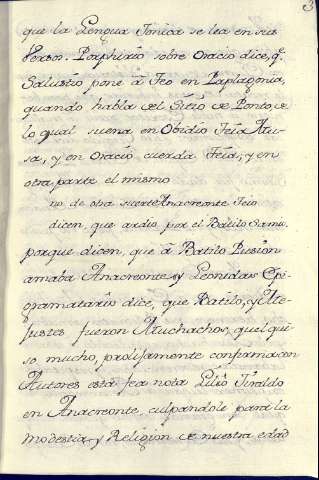 3
que la Lengua Jonica se lea en sus
Versos. Porphirio sobre Oracio dice, q.
Salustio pone à Teo en Paplagonia,
quando habla del Sitio de Ponto, de
lo qual suena en Obidio Teia Mu-
sa, y en Oracio cuerda Teia, y en
otra parte el mismo
no de otra suerte Anacreonte Teio
dicen, que ardio por el Batilo Samio.
porque dicen, que à Batilo
amaba Anacreonte, y Leonidas Epi-
gramatario dice, que Batilo, y Me-
gistes fueron Muchachos, que el qui-
so mucho, prolijamente confirma con
Autores esta fea nota Lilio Jiraldo
en Anacreonte, culpandole para la
modestia y Religion de nuestra edad